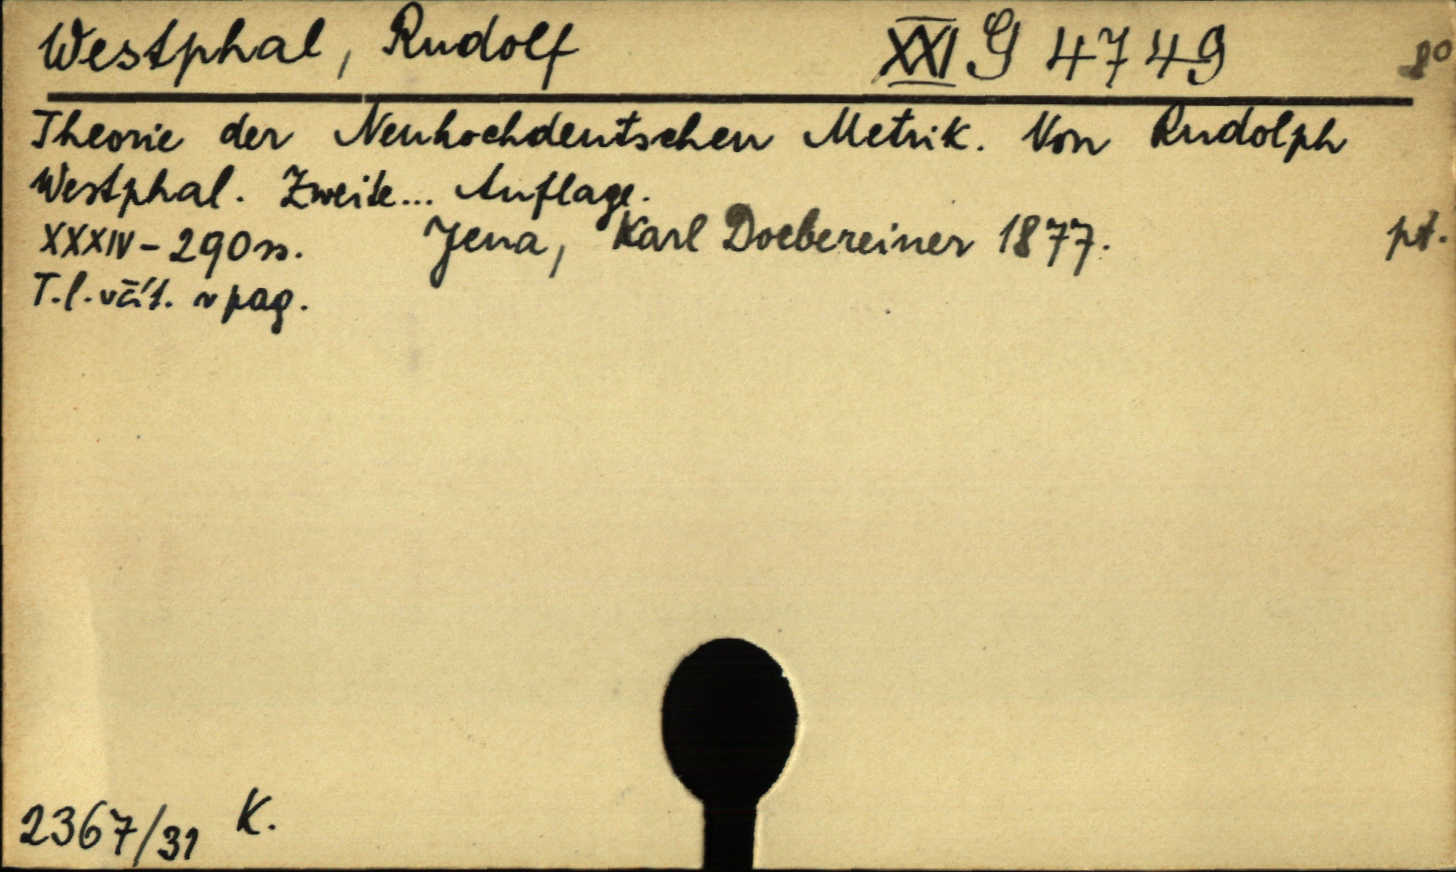 Westphal, Rudolf XXI G 4749 8°
Theorie der Neuhochdeutschen Metrik. Von Rudolph
Westphal. Zweite... Auflage.
XXXIV-290 ss. Jena, Karl Doebereiner 1877. pt.
T.l. včít. v pag.
2367/31 K.